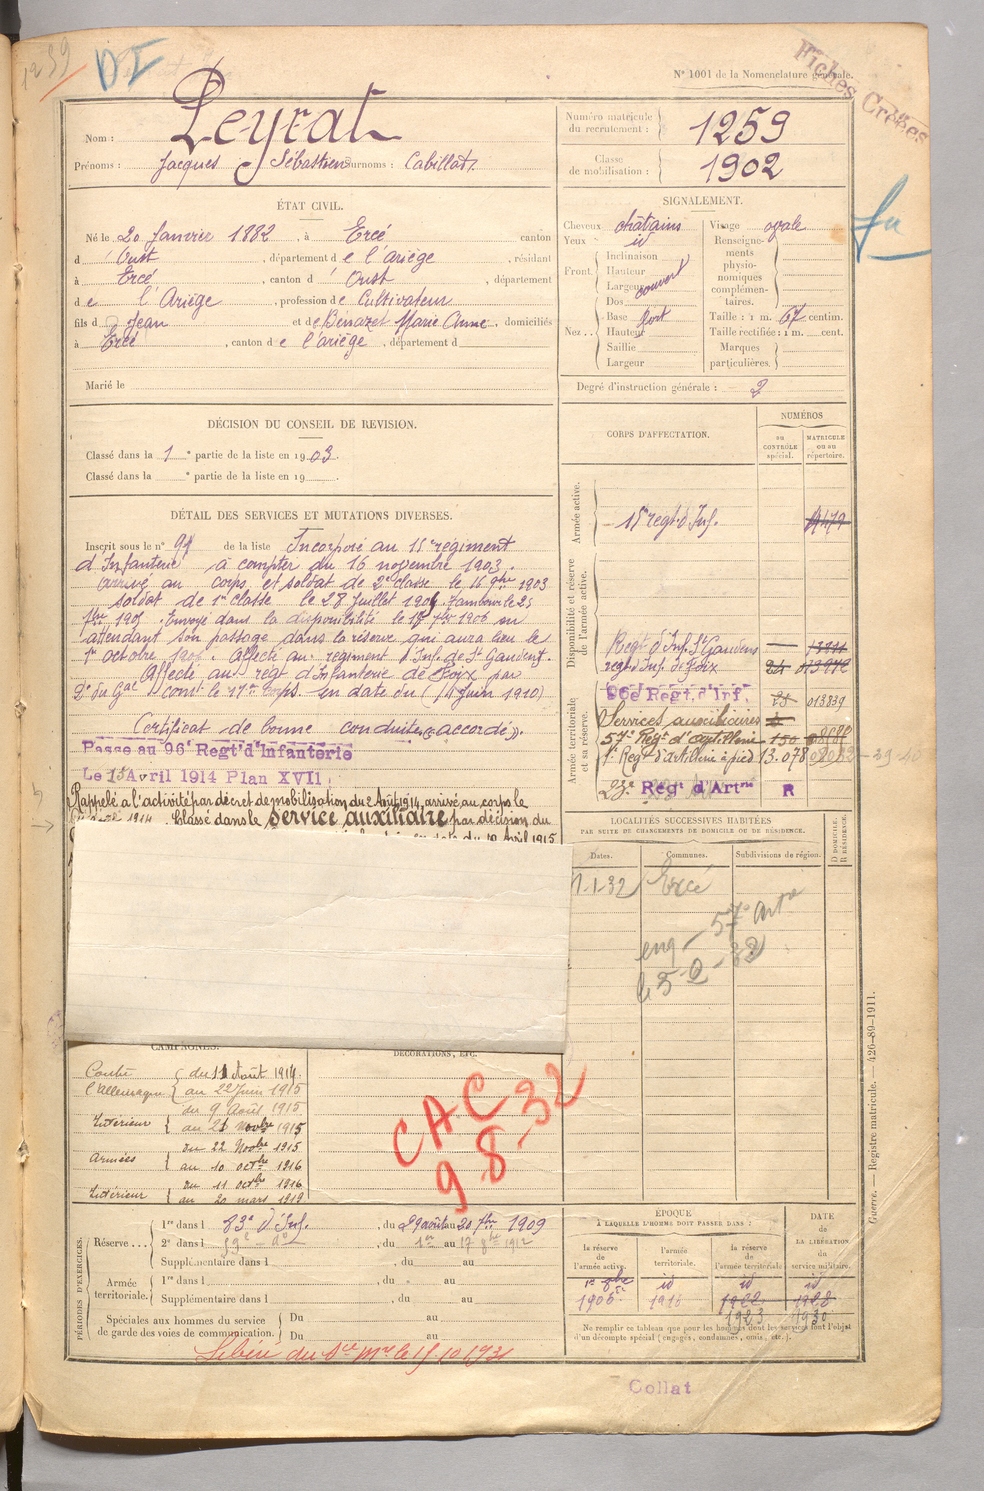 1259
D I
Nº 1001 de la Nomenclature générale.
Fiches Créées
Nom : Peyrat
Prénoms : Jacques Sébastien Surnoms : Cabillat
Numéro matricule du recrutement : 1259
Classe de mobilisation : 1902
ÉTAT CIVIL.
Né le 20 Janvier 1882, à Ercé canton
d'Oust, département de l'Ariège, résidant
à Ercé, canton d'Oust, département
de l'Ariège, profession de Cultivateur
fils de Jean et de Bénazet Marie Anne, domiciliés
à Ercé, canton de l'ariège, département d
Marié le
SIGNALEMENT.
Cheveux châtains
Yeux id
Front Inclinaison
Hauteur
Largeur couvert
Nez Dos
Base fort
Hauteur
Saillie
Largeur
Visage ovale
Renseignements physionomiques complémentaires.
Taille : 1 m. 67 centim.
Taille rectifiée : 1 m. cent.
Marques particulières.
Degré d'instruction générale : 2
DÉCISION DU CONSEIL DE REVISION.
Classé dans la 1e partie de la liste en 1903.
Classé dans la e partie de la liste en 19
CORPS D'AFFECTATION.
NUMÉROS
au CONTRÔLE spécial.
MATRICULE ou au répertoire.
Armée active.
15e regt d'Inf.
Disponibilité et réserve de l'armée active.
Regt d'Inf. St Gaudens
regt d'Inf. de Foix
Armée territoriale et sa réserve.
96e Régt. d'Inf. 013839
Services auxiliaires
57e Régt d'Artillerie 150
1er Regt d'Artillerie à pied 13.078
23e Régt d'Artrie R
DÉTAIL DES SERVICES ET MUTATIONS DIVERSES.
Inscrit sous le nº 94 de la liste Incorporé au 15e régiment
d'Infanterie à compter du 16 novembre 1903.
arrivé au corps et soldat de 2e classe le 16 9bre 1903
soldat de 1re classe le 28 Juillet 1904. Tambour le 25
7bre 1905. Envoyé dans la disponibilité le 18 7bre 1906 en
attendant son passage dans la réserve qui aura lieu le
1er octobre 1906. Affecté au régiment d'Inf. de St Gaudens.
Affecté au régt d'Infanterie de Foix par
Don du Gal Comt le 17e Corps en date du (14 Juin 1910)
Certificat de bonne conduite « accordé ».
Passé au 96e Regt d'Infanterie
Le 15 Avril 1914 Plan XVII
Rappelé à l'activité par décret de mobilisation du 2 Août 1914, arrivé au corps le
1914. Classé dans le service auxiliaire par décision du
en date du 19 Avril 1915
LOCALITÉS SUCCESSIVES HABITÉES
PAR SUITE DE CHANGEMENTS DE DOMICILE OU DE RÉSIDENCE.
Dates. Communes. Subdivisions de région. D DOMICILE. R RÉSIDENCE.
1-1-32 Ercé
57e Artie
CAMPAGNES.
DÉCORATIONS, ETC.
Contre l'Allemagne du 11 Août 1914
au 22 Juin 1915
Intérieur du 9 Août 1915
au 21 Novbre 1915
Armées du 22 Novbre 1915
au 10 octbre 1916
Intérieur du 11 octbre 1916
au 20 mars 1919
CAC
9 8-32
PÉRIODES D'EXERCICES.
Réserve... 1re dans l 83e d'Inf., du 29 août au 20 7bre 1909
2e dans l 59e, du 1er au 17 8bre 1912
Supplémentaire dans l, du au
Armée territoriale. 1re dans l, du au
Supplémentaire dans l, du au
Spéciales aux hommes du service de garde des voies de communication. Du au
Du au
Libéré du Sce Mre le 15.10.1931
ÉPOQUE
A LAQUELLE L'HOMME DOIT PASSER DANS :
la réserve de l'armée active.
l'armée territoriale.
la réserve de l'armée territoriale.
DATE de LA LIBÉRATION du service militaire.
1er 8bre id id id
1906 1916 1922 1928
1923 1930
Ne remplir ce tableau que pour les hommes dont les services font l'objet
d'un décompte spécial (engagés, condamnés, omis, etc.).
Guerre. — Registre matricule. — 426-89-1911.
Collat